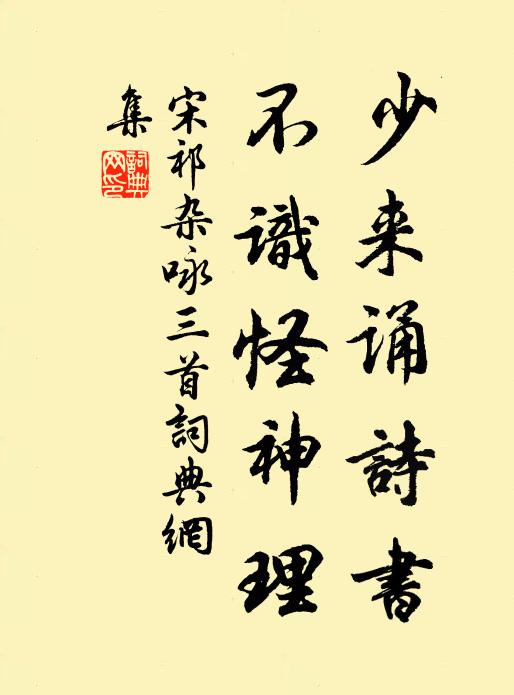 少来诵詩書
不識怪神理
宋祁杂咏三首詞典網
集
詞典
网印